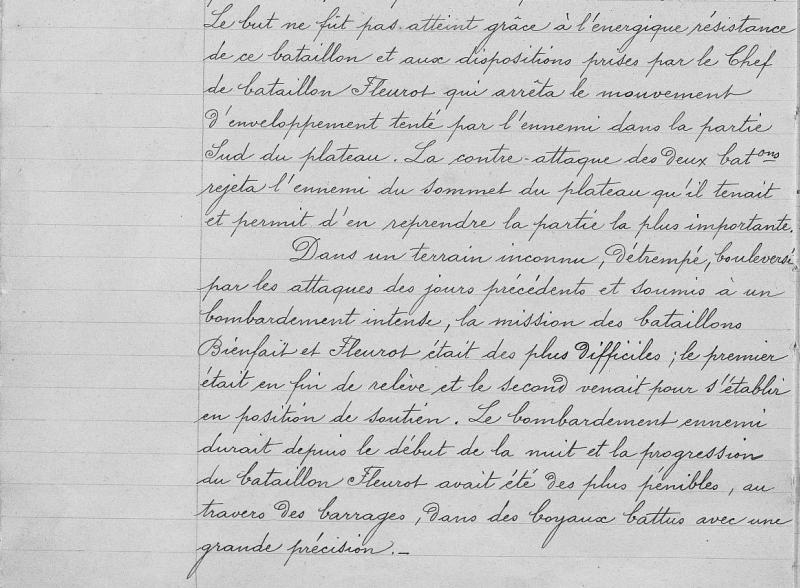 Le but ne fût pas atteint grâce à l'énergique résistance
de ce bataillon et aux dispositions prises par le Chef
de bataillon Fleurot qui arrêta le mouvement
d'enveloppement tenté par l'ennemi dans la partie
Sud du plateau. La contre-attaque des deux bat^ons
rejeta l'ennemi du sommet du plateau qu'il tenait
et permit d'en reprendre la partie la plus importante.
Dans un terrain inconnu, détrempé, bouleversé
par les attaques des jours précédents et soumis à un
bombardement intense, la mission des bataillons
Bienfait et Fleurot était des plus difficiles ; le premier
était en fin de relève et le second venait pour s'établir
en position de soutien. Le bombardement ennemi
durait depuis le début de la nuit et la progression
du bataillon Fleurot avait été des plus pénibles, au
travers des barrages, dans des boyaux battus avec une
grande précision._